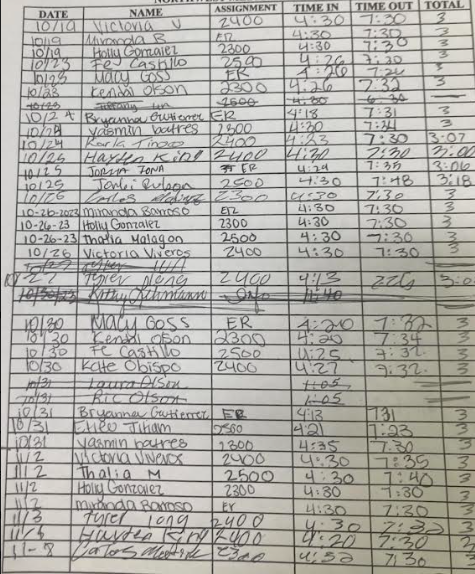 DATE NAME ASSIGNMENT TIME IN TIME OUT TOTAL
10/19 Victoria V 2400 4:30 7:30 3
10/19 Miranda B ER 4:30 7:30 3
10/19 Holly Gonzalez 2300 4:30 7:30 3
10/23 Fe Castillo 2500 4:26 7:30 3
10/23 Macy Goss ER 4:26 3
10/23 Kendal Olson 2300 4:26 7:32 3
10/23 Tiffany 2500 4:30 6:30
10/24 Bryanna Gutierrez ER 4:18 7:31 3
10/24 Yasmin batres 2300 4:30 3
10/24 Karla 2400 4:23 7:30 3:07
10/25 Hayden King 2400 4:30 7:30 3:00
10/25 ER 4:29 7:35 3:06
10/25 2500 4:30 7:48 3:18
10/26 Carlos 2300 4:30 7:30 3
10-26-2023 Miranda Barroso ER 4:30 7:30 3
10-26-23 Holly Gonzalez 2300 4:30 7:30 3
10-26-23 Thalia Malagon 2500 4:30 7:30 3
10/26 Victoria Viveros 2400 4:30 7:30 3
10/27 Tyler
10/27 Tyler 2400 4:13
10/30/23 Kathy
10/30 Macy Goss ER 4:20 7:32 3
10/30 Kendal Olson 2300 4:20 7:34 3
10/30 Fe Castillo 2500 4:25 7:32 3
10/30 Kate Obispo 2400 4:27 7:32 3
10/31 Laura Olson 1:05
10/31 Ric Olson 1:05
10/31 Bryanna Gutierrez ER 4:13 731 3
10/31 4:21 7:23 3
10/31 Yasmin batres 2300 4:35 7:30 3
11/2 Victoria Viveros 2400 4:30 7:35 3
11/2 Thalia M 2500 4:30 7:40 3
11/2 Holly Gonzalez 2300 4:30 7:30 3
11/2 Miranda Barroso Er 4:30 7:30 3
11/3 Tyler 2400 4:30 3
11/3 Hayden King 2400 4:20 7:30 3
Carlos 2300 4:32 7:30 3